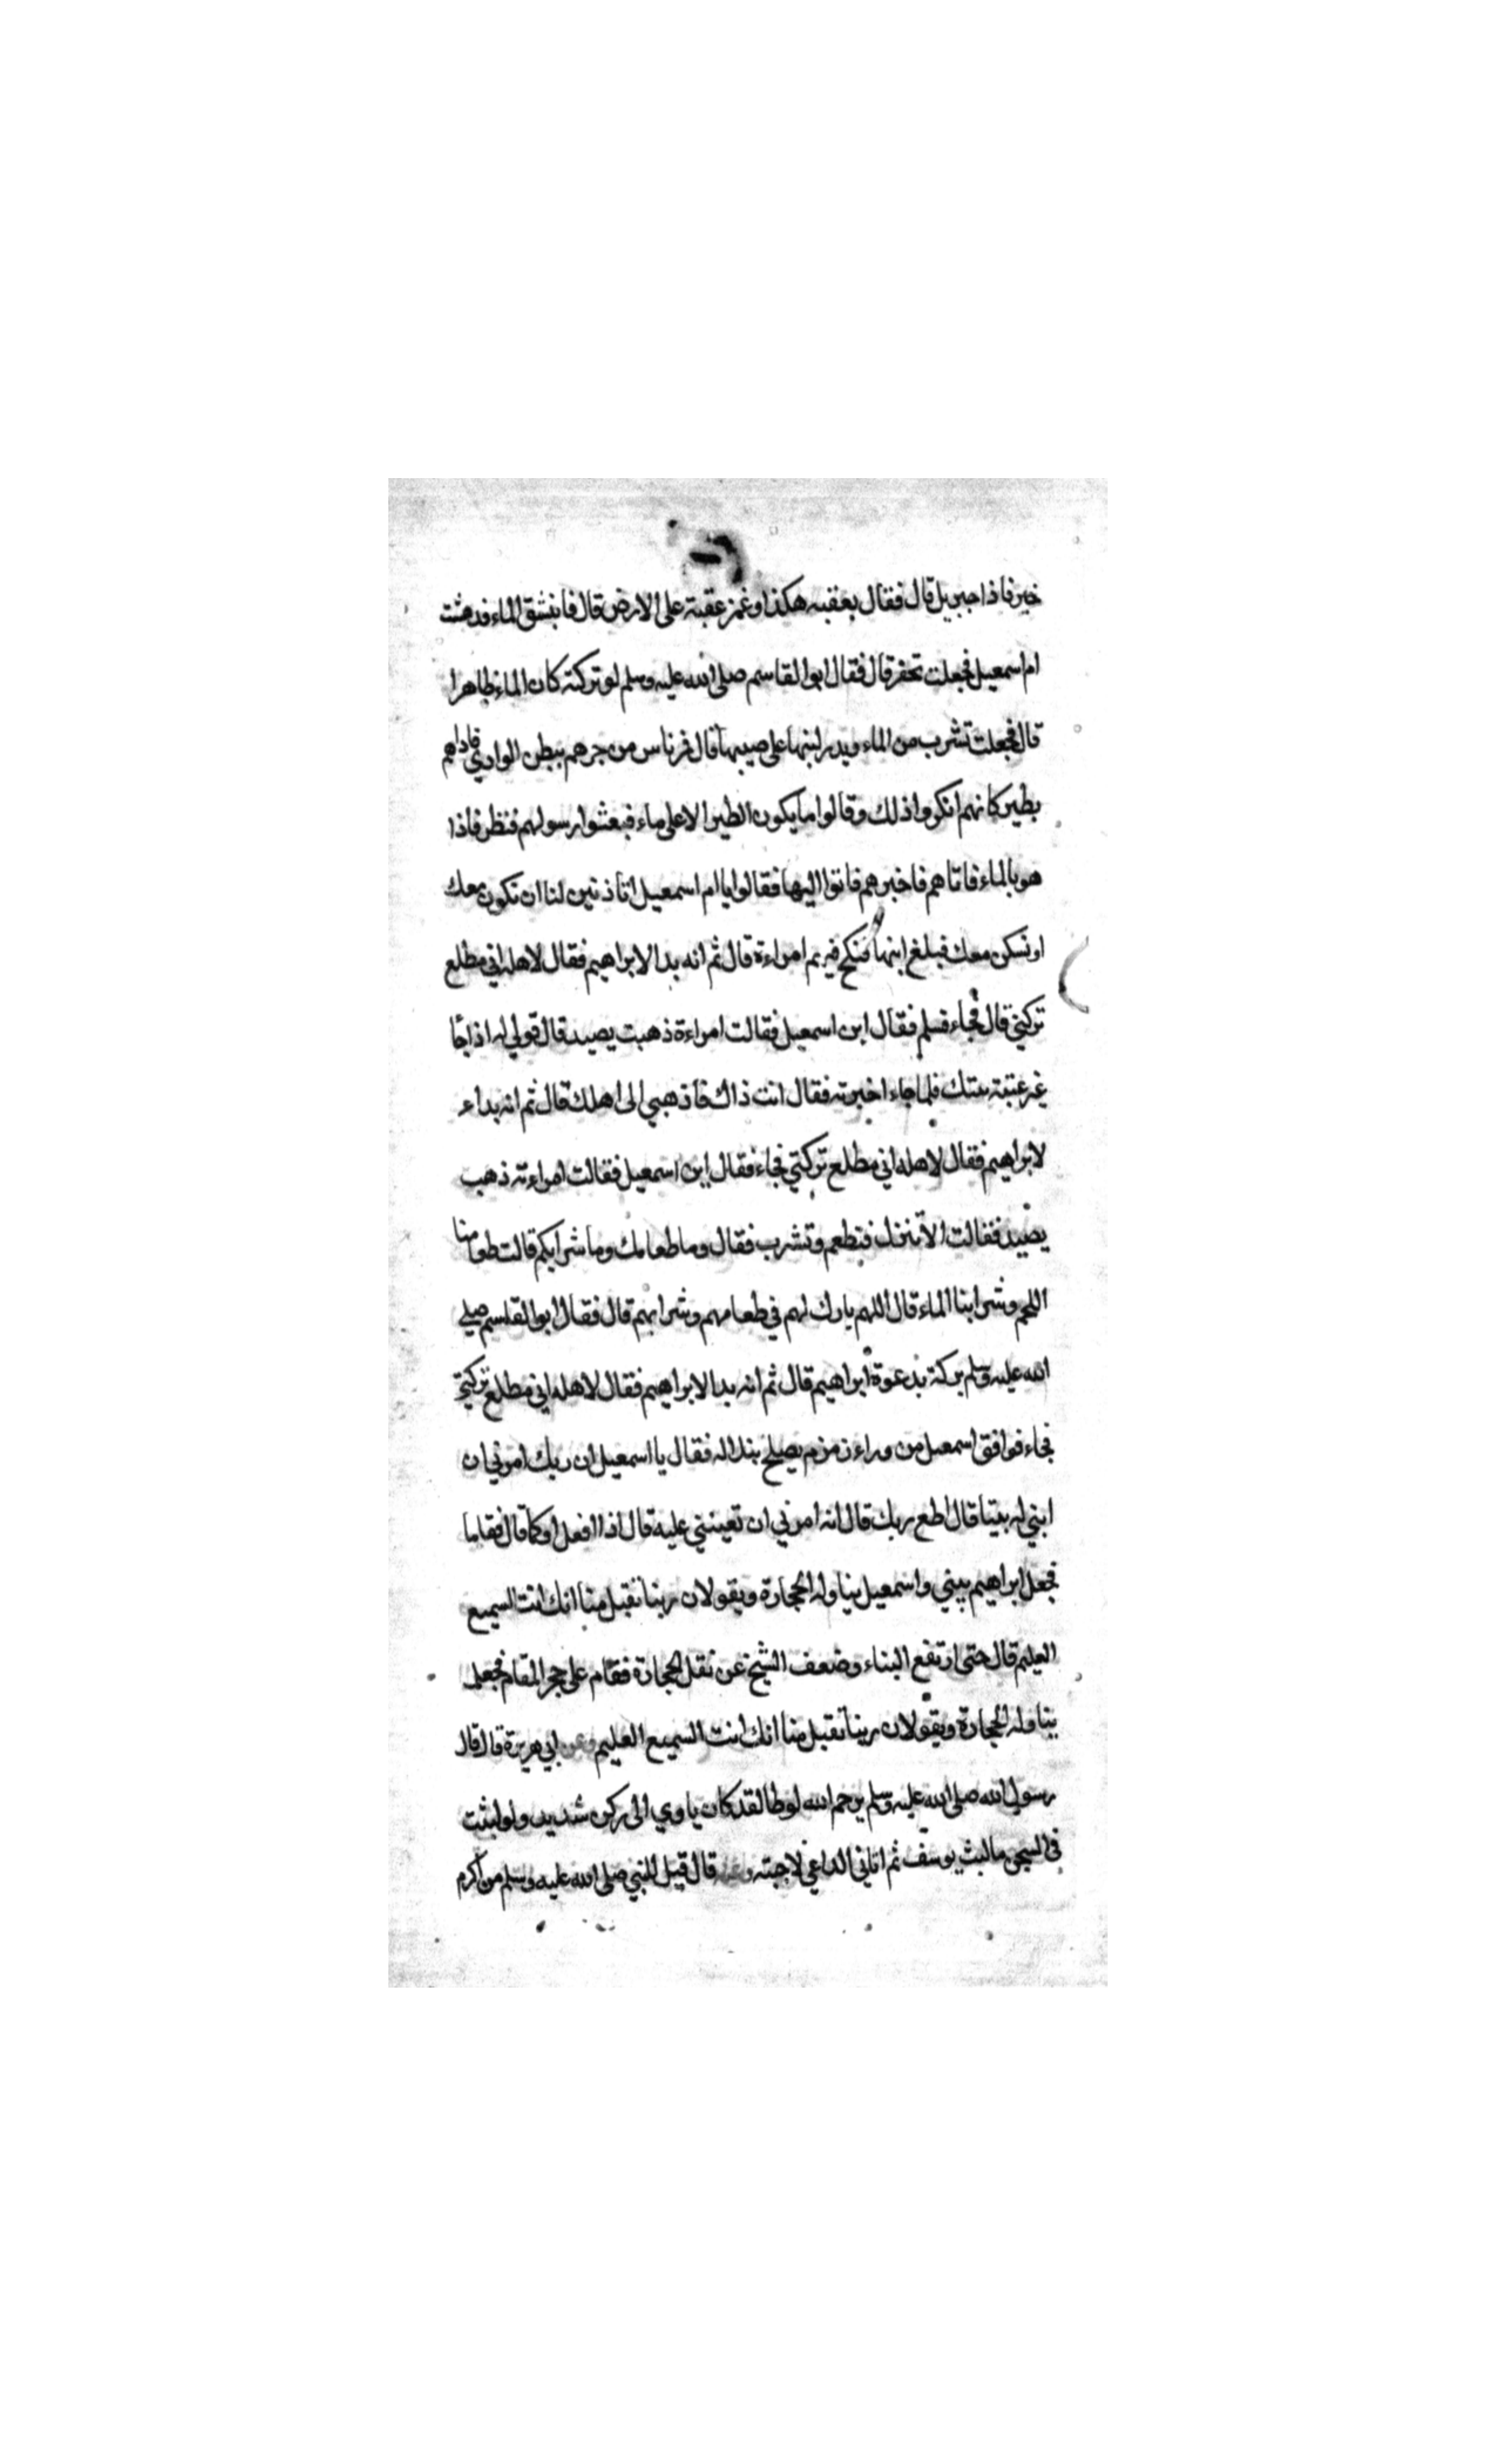 خير فاذا جبريل قال فقال بعقبه هكذا وغمز عقبة على الارض قال فانبثق الماء فدهشت
ام اسمعيل فجعلت تحفر قال فقال ابو القاسم صلى الله عليه وسلم لو تركته كان الماء ظاهرا
قال فجعلت تشرب من الماء ويدر لبنها على صبيها قال فمر ناس من جرهم ببطن الوادي فاذا هم
بطير كانهم انكروا ذلك وقالوا ما يكون الطير الا على ماء فبعثوا رسولهم فنظر فاذا
هو بالماء فاتاهم فاخبرهم فاتوا اليها فقالوا يا ام اسمعيل اتاذنين لنا ان نكون معك
او نسكن معك فبلغ ابنها فنكح فيهم امراءة قال ثم انه بدا لابراهيم فقال لاهله اني مطلع
تركتي قال فجاء فسلم فقال اين اسمعيل فقالت امراءة ذهبت يصيد قال قولي له اذا جا
غير عتبة بيتك فلما جاء اخبرته فقال انت ذاك فاذهبي الى اهلك قال ثم انه بداء
لابراهيم فقال لاهله اني مطلع تركتي فجاء فقال اين اسمعيل فقالت امراءته ذهب
يصيد فقالت الا تنزل فتطعم وتشرب فقال وما طعامك وما شرابكم قالت طعامنا
اللحم وشرابنا الماء قال اللهم بارك لهم في طعامهم وشرابهم قال فقال ابو القاسم صلى
الله عليه وسلم بركة بدعوة ابراهيم قال ثم انه بدا لابراهيم فقال لاهله اني مطلع تركتي
فجاء فوافق اسمعيل من وراء زمزم يصلح نبلا له فقال يا اسمعيل ان ربك امرني ان
ابني له بيتا قال اطع ربك قال انه امرني ان تعينني عليه قال اذا افعل او كما قال فقاما
فجعل ابراهيم يبني واسمعيل يناوله الحجارة ويقولان ربنا تقبل منا انك انت السميع
العليم قال حتى ارتفع البناء وضعف الشيخ عن نقل الحجارة فقام على حجر المقام فجعل
يناوله الحجارة ويقولان ربنا تقبل منا انك انت السميع العليم وعن ابي هريرة قال قال
رسول الله صلى الله عليه وسلم يرحم الله لوطا لقد كان ياوي الى ركن شديد ولو لبثت
في السجن ما لبث يوسف ثم اتاني الداعي لاجبته وعنه قال قيل للنبي صلى الله عليه وسلم من اكرم